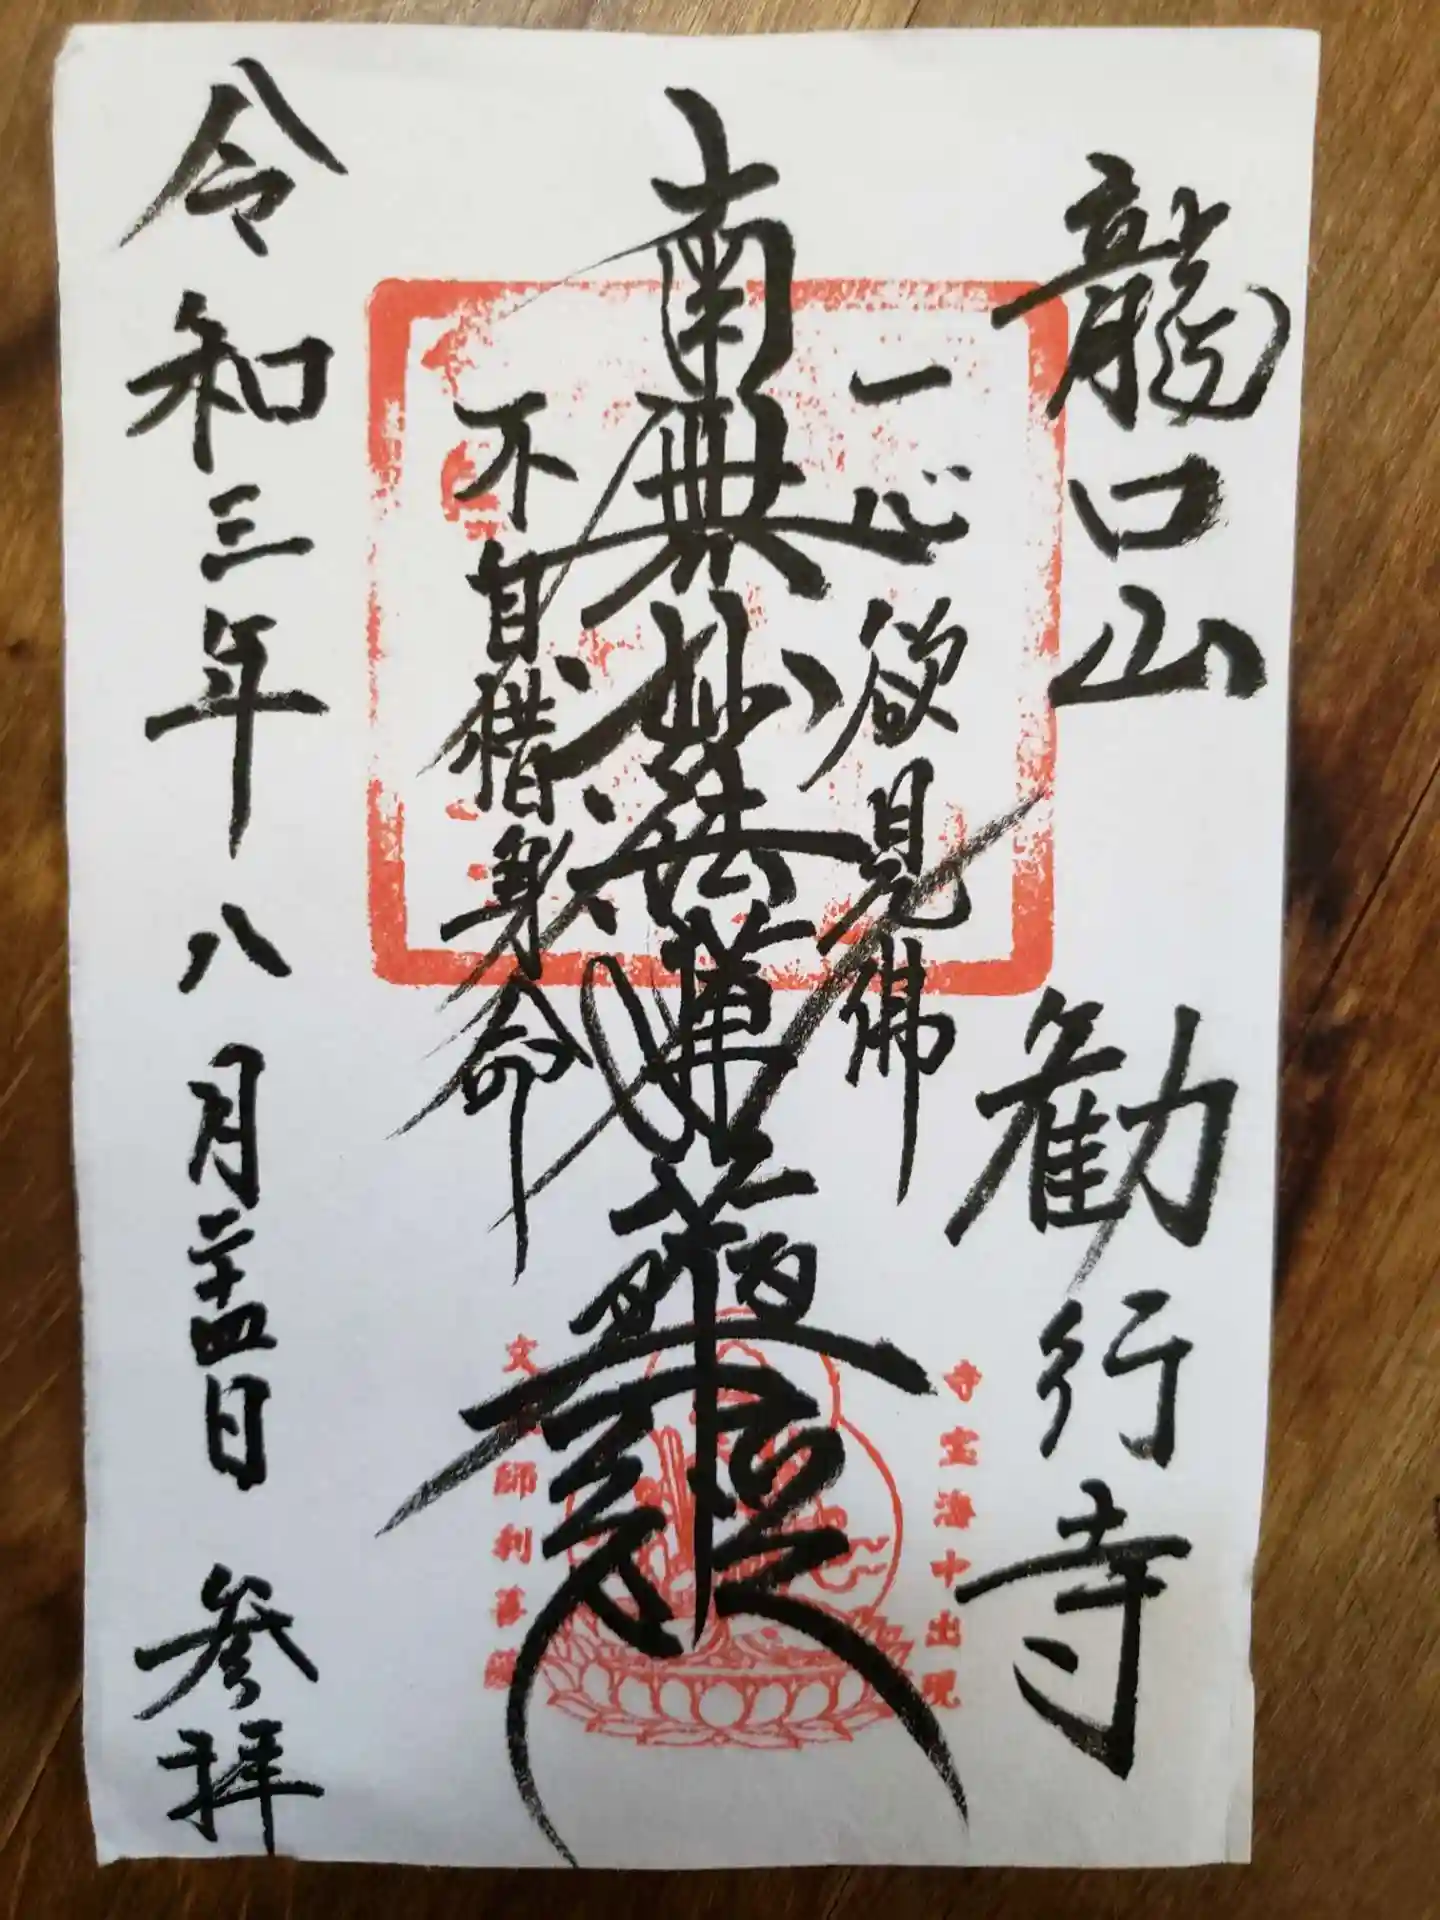 龍口山　勧行寺
一心欲見佛
南無妙法蓮華經
不自惜身命
令和三年八月二十四日　参拝
寺宝海中出現
文 師利菩薩